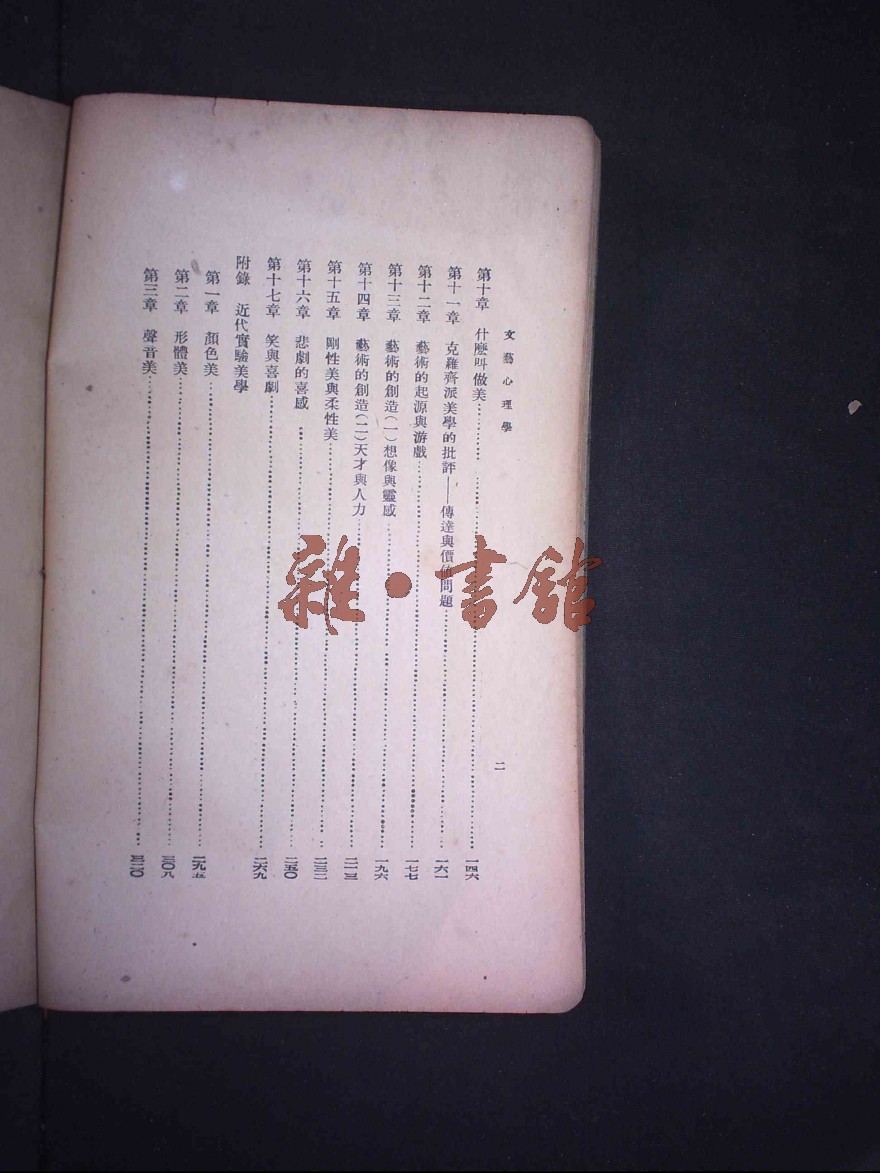 文藝心理學
二
第十章 什麽叫做美……一四六
第十一章 克羅齊派美學的批評——傳達與價値問題……一六一
第十二章 藝術的起源與游戲……一七七
第十三章 藝術的創造(一)想像與靈感……一九六
第十四章 藝術的創造(二)天才與人力……二一三
第十五章 剛性美與柔性美……二三二
第十六章 悲劇的喜感……二五〇
第十七章 笑與喜劇……二六九
附錄 近代實驗美學
第一章 顏色美……二九五
第二章 形體美……三〇八
第三章 聲音美……三二〇
雜·書館